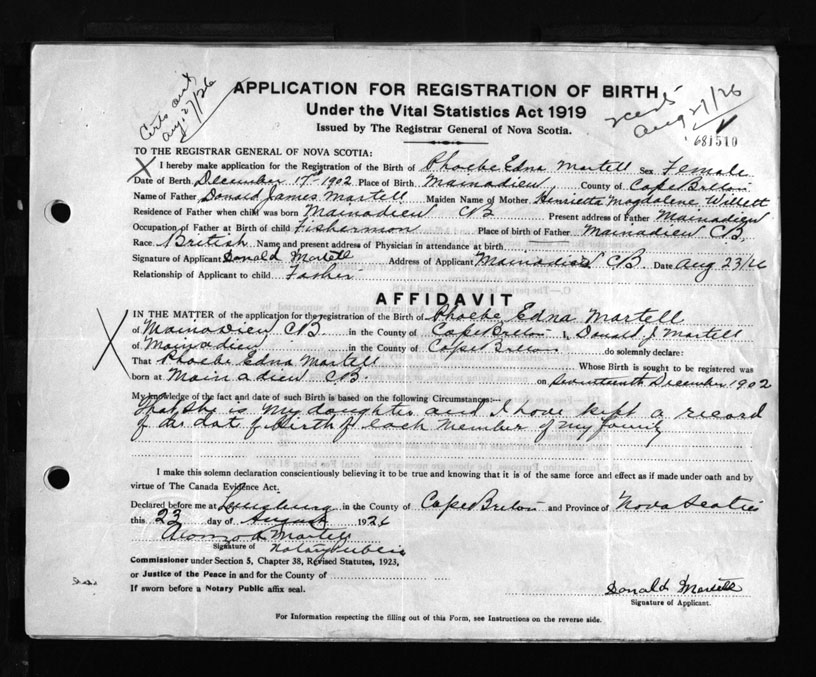 APPLICATION FOR REGISTRATION OF BIRTH
Under the Vital Statistics Act 1919
Issued by The Registrar General of Nova Scotia.
Aug 27/26
Aug 27/26
681510
TO THE REGISTRAR GENERAL OF NOVA SCOTIA:
X I hereby make application for the Registration of the Birth of Phoebe Edna Martell Sex Female
Date of Birth December 17th 1902 Place of Birth Mainadieu, County of Cape Breton
Name of Father Donald James Martell Maiden Name of Mother Henrietta Magdalene Willett
Residence of Father when child was born Mainadieu CB Present address of Father Mainadieu
Occupation of Father at Birth of child Fisherman Place of birth of Father Mainadieu CB,
Race British Name and present address of Physician in attendance at birth
Signature of Applicant Donald Martell Address of Applicant Mainadieu CB Date Aug 23/26
Relationship of Applicant to child Father
AFFIDAVIT
IN THE MATTER of the application for the registration of the Birth of Phoebe Edna Martell
of Mainadieu CB. in the County of Cape Breton I, Donald J Martell
of Mainadieu in the County of Cape Breton do solemnly declare:
X
That Phoebe Edna Martell Whose Birth is sought to be registered was
born at Mainadieu CB. on Seventeenth December 1902
My knowledge of the fact and date of such Birth is based on the following Circumstances:—
That she is my daughter and I have kept a record
of the dat of Birth of each member of my family
I make this solemn declaration conscientiously believing it to be true and knowing that it is of the same force and effect as if made under oath and by
virtue of The Canada Evidence Act.
Declared before me at Louisburg in the County of Cape Breton and Province of Nova Scotia
this 23 day of August 1926
Alonzo A Martell
Signature of Notary Public
Commissioner under Section 5, Chapter 38, Revised Statutes, 1923,
or Justice of the Peace in and for the County of
If sworn before a Notary Public affix seal.
Donald Martell
Signature of Applicant.
For Information respecting the filling out of this Form, see Instructions on the reverse side.